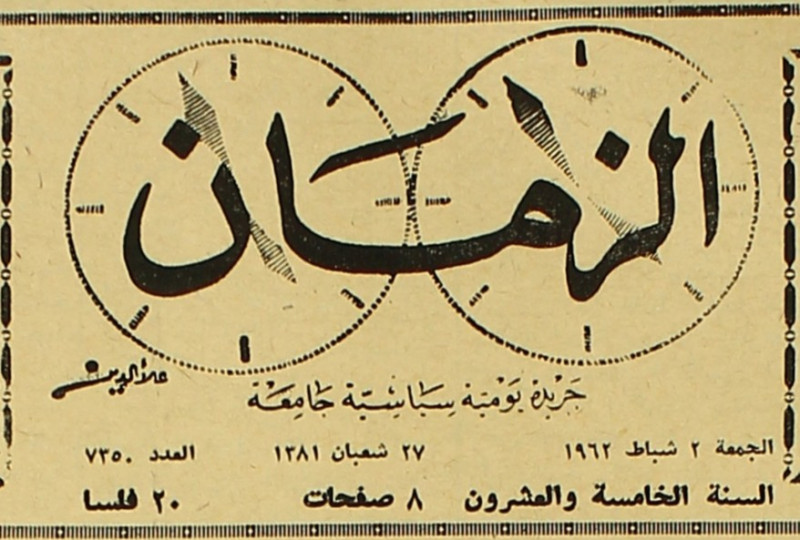 الزمان
علاء الدين
جريدة يومية سياسية جامعة
الجمعة ٢ شباط ١٩٦٢ ٢٧ شعبان ١٣٨١ العدد ٧٣٥٠
السنة الخامسة والعشرون ٨ صفحات ٢٠ فلسا